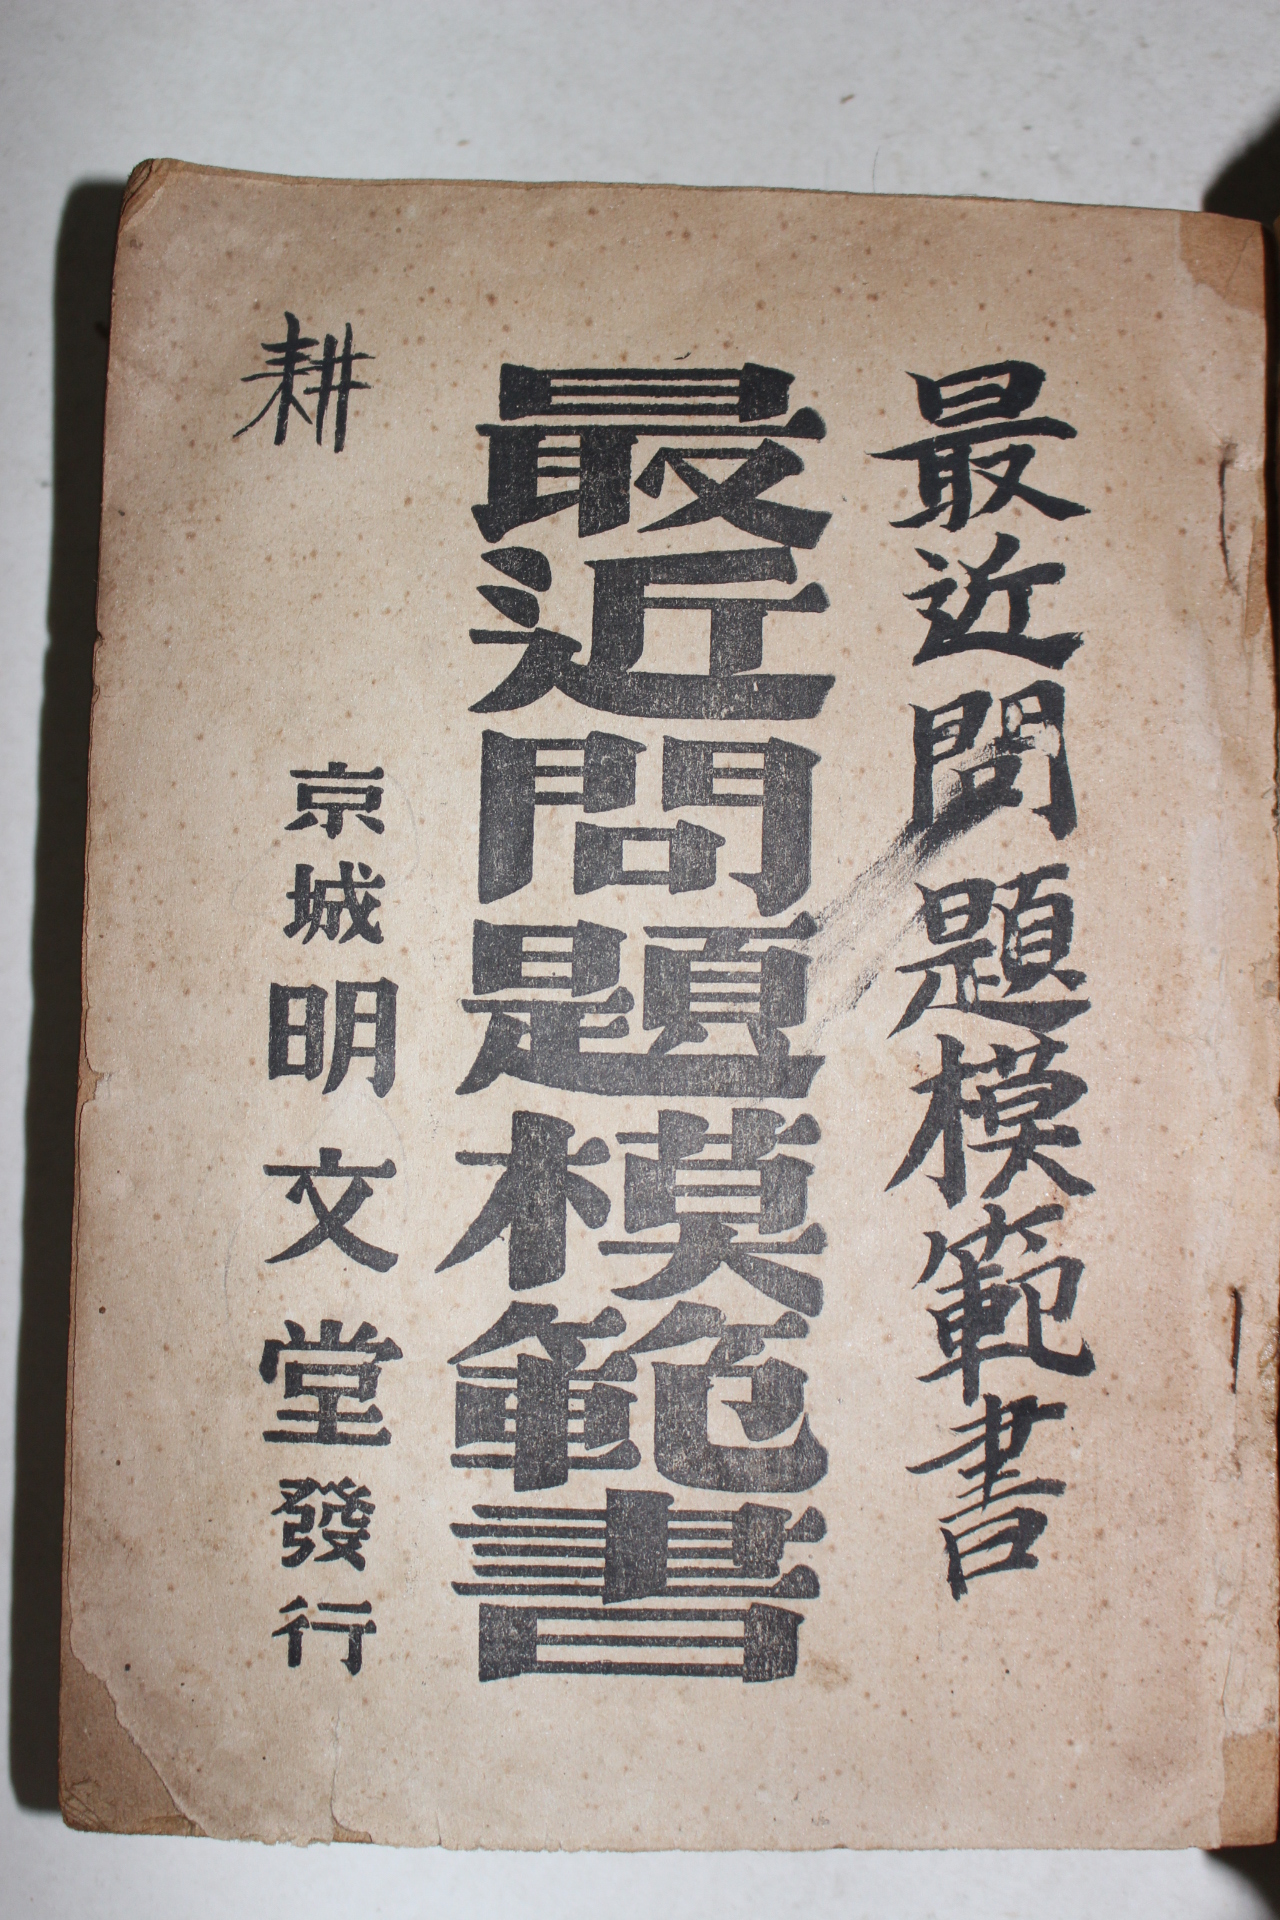 最近問題模範書
最近問題模範書
京城明文堂發行
耕